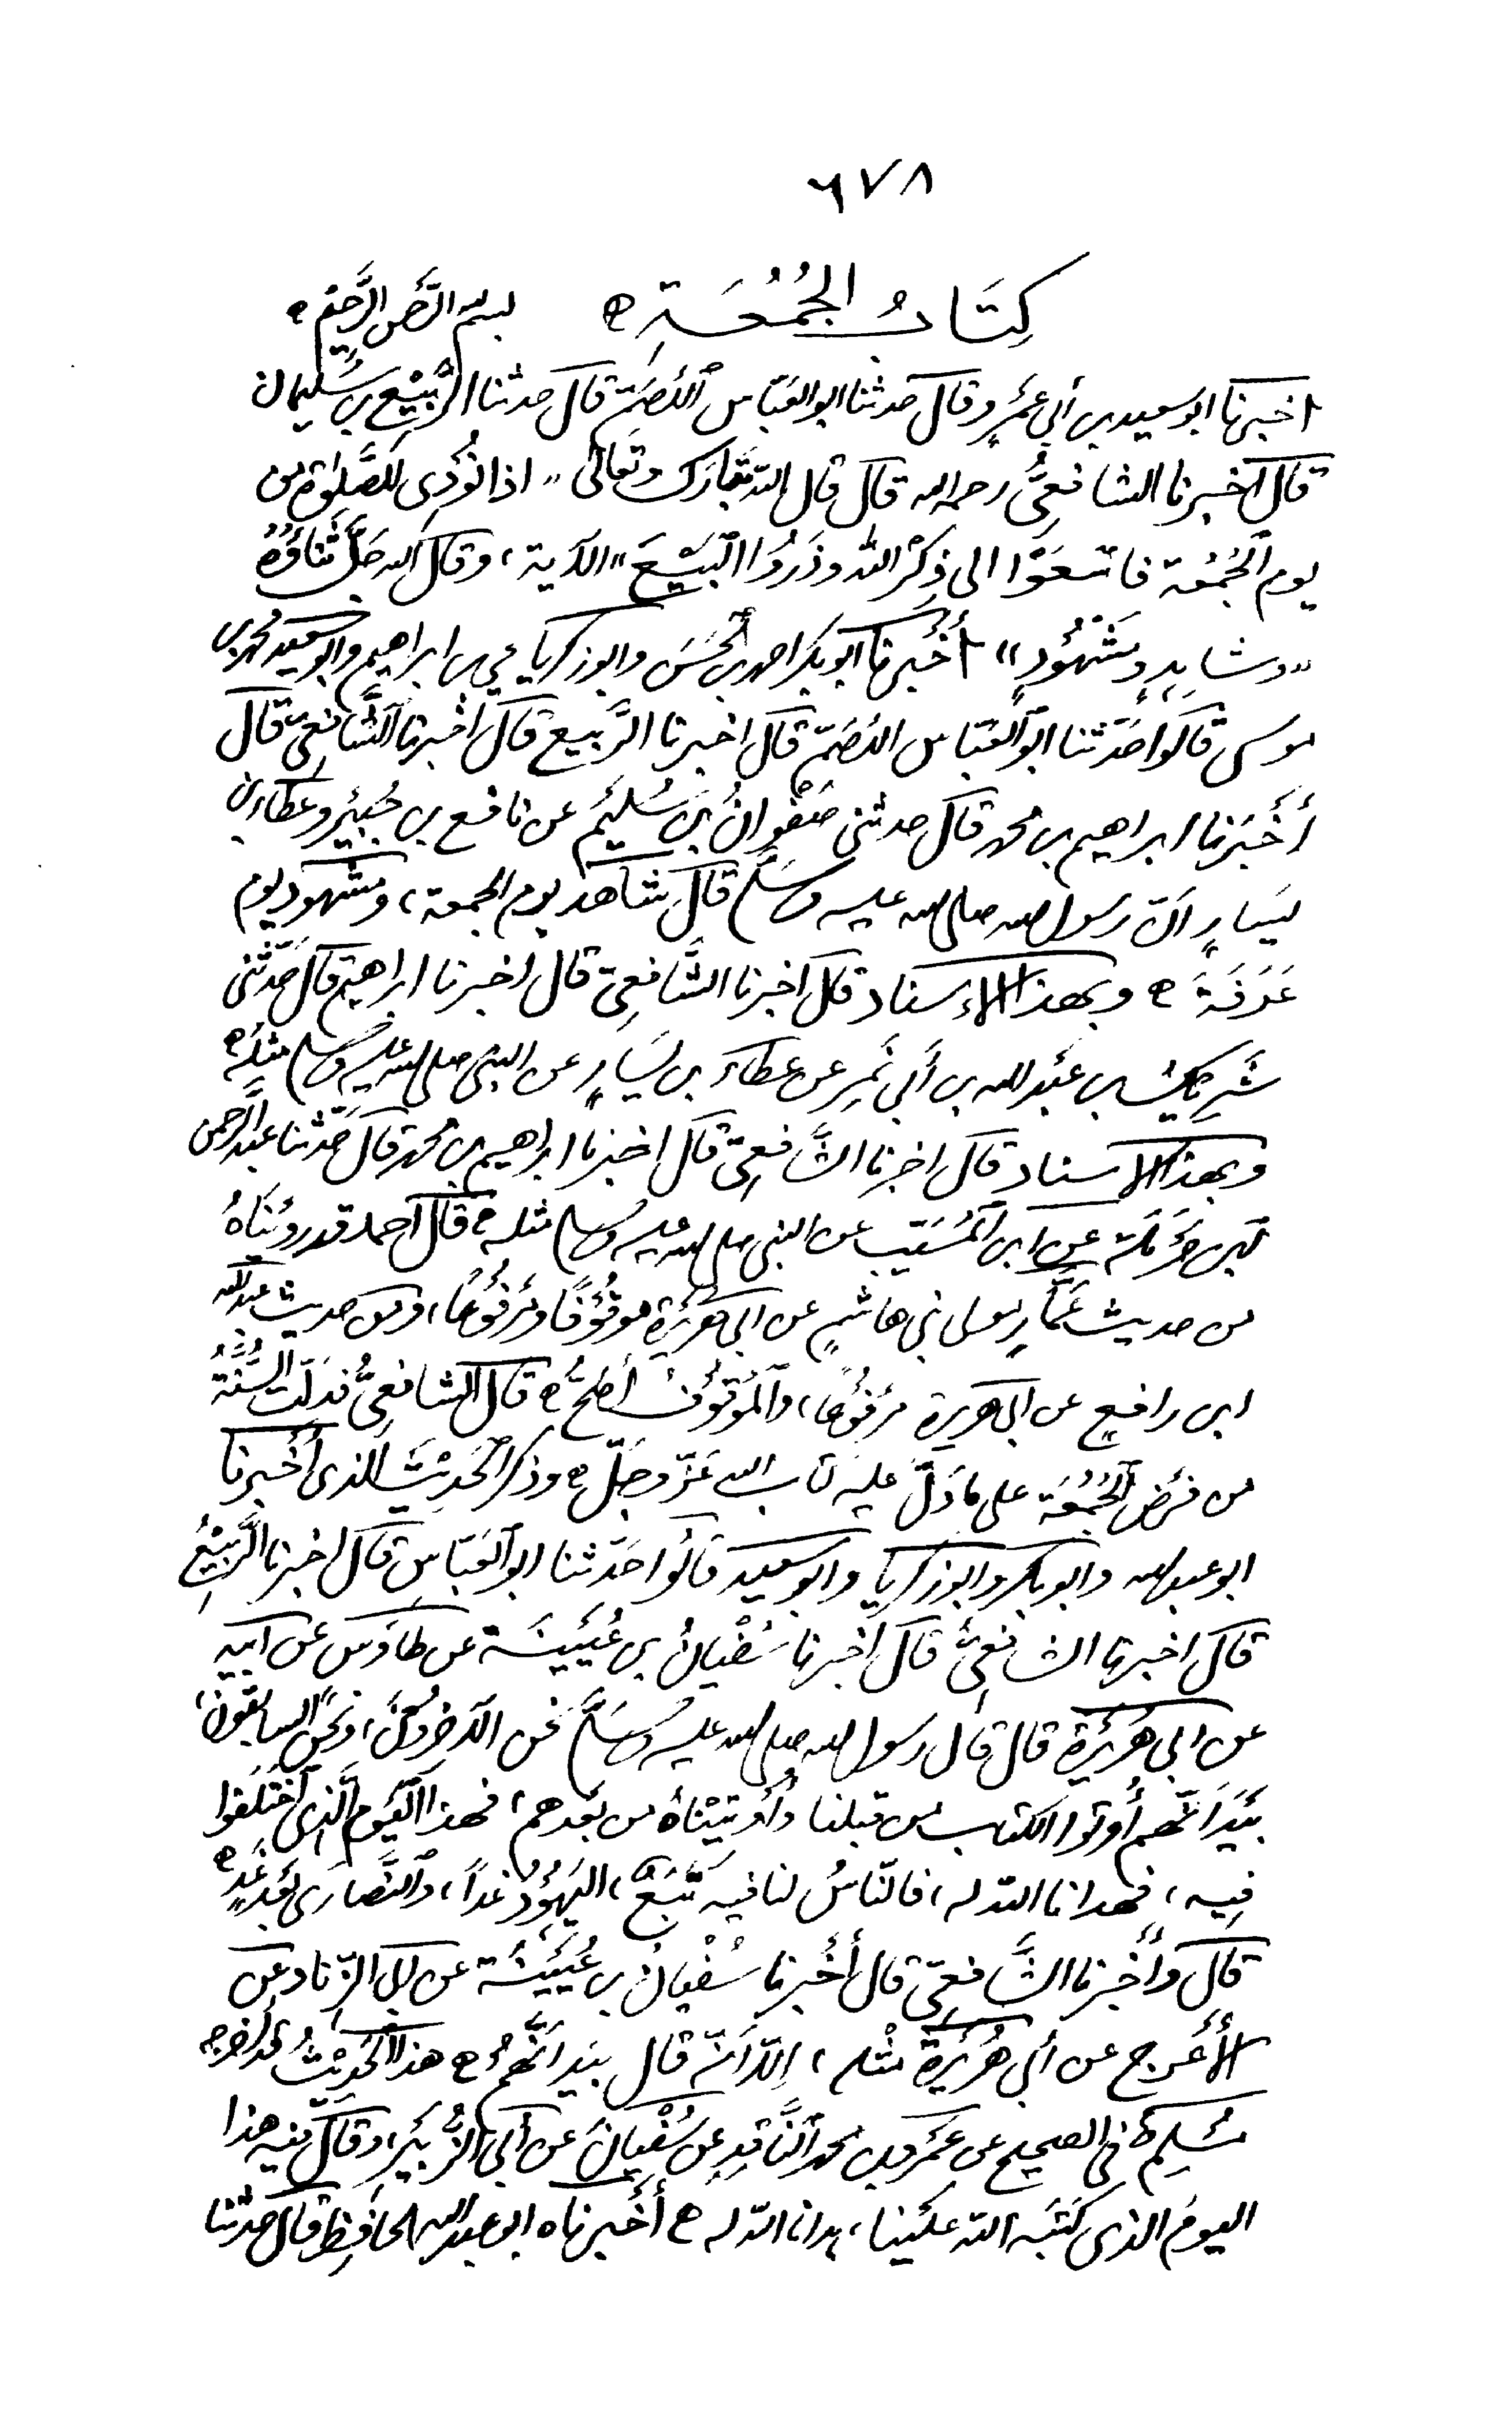 ٦٧٨
كِتَابُ الجُمُعَةِ ه بسم الله الرَّحمن الرَّحِيم ه
اخبرنا ابو سعيد بن أبي عَمرٍو قال حدثنا ابو العَبّاس الأصَمّ قال حدثنا الرَّبِيْع بن سُلَيمان
قال اخبرنا الشافِعِىُّ رحمه الله قال قال الله تَبَارَك وتَعَالى " اذا نُوْدِى لِلصَّلوٰة من
يوم الْجُمُعة فَاسْعَوْا الى ذِكْر الله وذَرُوا الْبَيْعَ " الآية ، وقال الله جَلَّ ثَنَاؤُهُ
" وشَاهِدٍ ومَشْهُوْدٍ " أَخْبَرنا ابو بكر احمد بن الحَسَن وابو زكريا يحيى بن ابراهيم وابو سعيد محمد بن
موسى قالوا حَدَّثنا ابو العَبّاس الأصَمّ قال اخبرنا الرَّبيع قال اخبرنا الشَّافعىّ قال
أَخْبَرنا ابراهيم بن محمد قال حدثنى صَفْوانُ بن سُلَيْم عن نافع بن جُبَيْر وعَطاء بن
يَسارٍ انّ رسول الله صلى الله عليه وسَلَّم قال شاهد يوم الجمعة ، ومشهود يوم
عَرَفَةَ ه وبهذا الإسناد قال اخبرنا الشَّافعِىّ قال اخبرنا ابراهيم قال حَدَّثنى
شَرِيْكُ بن عَبْد الله بن أَبي نَمِر عن عطاء بن يَسَارٍ عن النبى صلى الله عليه وسلم مثلَه ه
وبهذا الاسناد قال اخبرنا الشَّافِعِىّ قال اخبرنا ابراهيم بن محمد قال حَدّثنا عبد الرحمن
بن حَرْمَلَة عن ابن المُسَيّب عن النبى صلى الله عليه وسلم مثله ه قال احمد قد رويْنَاهُ
من حديث عَمّارٍ مولى بَنى هاشمٍ عن ابى هُرَيْرة موقُوْفًا ومَرفُوْعًا ، ومن حديث عبد الله
ابن رافعٍ عن ابى هريرة مَرفُوْعًا ، والمَوْقُوْفُ أصَحُّ ه قال الشافِعِىُّ فدَلّت السُّنَّةُ
من فَرْض الجُمُعَة على ما دَلَّ عليه كتاب الله عَزّ وجَلّ ه وذكر الحَدِيْثَ الذى أَخْبرنا
ابو عبد الله وابو بكر وابو زكريا وابو سعيد قالُوا حَدّثنا ابو العَبّاسِ قال اخبرنا الرَّبِيْعُ
قال اخبرنا الشافعىّ قال اخبرنا سُفْيانُ بن عُيَيْنَة عن طاؤس عن ابيه
عن ابى هُرَيْرَة قال قال رسول الله صلى الله عليه وسَلّم نَحْن الآخروْنَ ، ونَحْن السابقون ،
بَيْدَ انّهم أُوتوا الكتاب من قبلنا وأُوْتِيْنَاهُ من بَعْدهم ، فهذا الْيَوْم الَّذِى اخْتَلَفوا
فِيه ، فهدانا الله له ، فالنّاسُ لنا فيه تَبَعٌ ، اليَهُوْدُ غداً ، والنَّصَارَى بَعْد غَدٍ ه
قال وأَخْبرنا الشَّافعىّ قال أَخْبَرنا سُفْيانُ بن عُيَيْنَة عن ابى الزِّناد عن
الأَعْرج عن أبي هُرَيْرَة مثْله ، إلاّ اَنّه قال بَيْدَ انَّهُمْ ه هذا الحَدِيْثُ قد أخرجه
مُسْلِمٌ فى الصحيح عن عَمرو بن محمد النَّاقِد عن سُفْيانَ عن أَبى الزُّبَيْر ، وقال فيه هذا
اليومُ الذى كَتَبَه الله علَيْنا ، هدانا الله له ه أَخْبرناه ابو عبد الله الحافِظ قال حدّثنا